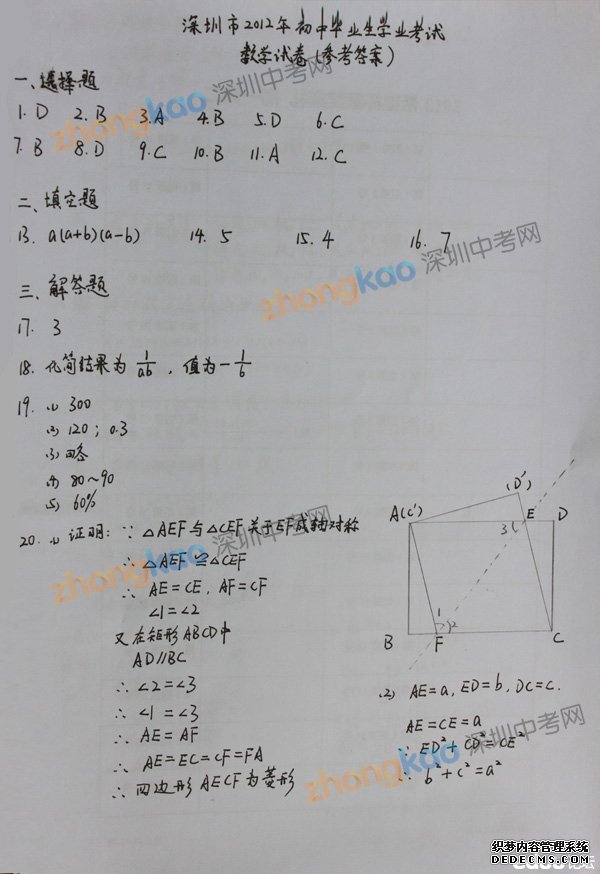 深圳市2012年初中毕业生学业考试
数学试卷(参考答案)
一、选择题
1. D 2. B 3. A 4. B 5. D 6. C
7. B 8. D 9. C 10. B 11. A 12. C
二、填空题
13. a(a+b)(a-b) 14. 5 15. 4 16. 7
三、解答题
17. 3
18. 化简结果为 1/ab , 值为 -1/6
19. (1) 300
(2) 120 ; 0.3
(3) 略
(4) 80~90
(5) 60%
20. (1) 证明: ∵ △AEF与△CEF关于EF成轴对称
∴ △AEF≌△CEF
∴ AE=CE, AF=CF
∠1=∠2
又在矩形ABCD中
AD∥BC
∴ ∠2=∠3
∴ ∠1=∠3
∴ AE=AF
∴ AE=EC=CF=FA
∴ 四边形AECF为菱形
(D')
A(C') E D
3
1
2
B F C
(2) AE=a, ED=b, DC=c.
AE=CE=a
∵ ED²+CD²=CE²
∴ b²+c²=a²
zhongkao 深圳中考网
zhongkao 深圳中考网
zhongkao 深圳中考网
zhongkao 深圳中考网
织梦内容管理系统
DEDECMS.COM
论坛